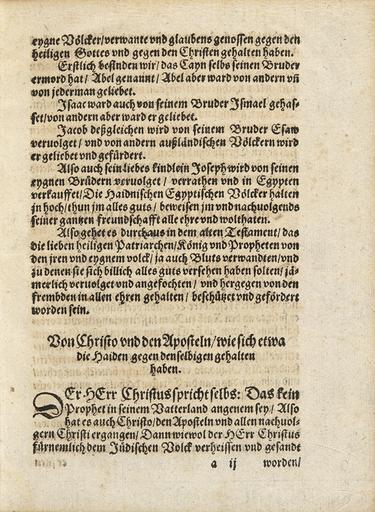 eygne Völcker/verwante vnd glaubens genossen gegen den
heiligen Gottes vnd gegen den Christen gehalten haben.
Erstlich befinden wir/das Cayn selbs seinen Bruder
ermord hat/Abel genannt/Abel aber ward von andern vñ
von jederman geliebet.
Isaac ward auch von seinem Bruder Ismael gehas-
set/von andern aber ward er geliebet.
Jacob deßgleichen wird von seinem Bruder Esaw
veruolget/vnd von andern außländischen Völckern wird
er geliebet vnd gefürdert.
Also auch sein liebes kindlein Joseph wird von seinen
eygnen Brüdern veruolget/verrathen vnd in Egypten
verkaufft/Die Haidnischen Egyptischen Völcker halten
jn hoch/thun jm alles guts/beweisen jm vnd nachuolgends
seiner gantzen freundschafft alle ehre vnd wolthaten.
Also gehet es durchaus in dem alten Testament/das
die lieben heiligen Patriarchen/König vnd Propheten von
den jren vnd eygnem volck/ja auch Bluts verwandten/vnd
zu denen sie sich billich alles guts versehen haben solten/jä-
merlich veruolget vnd angefochten/vnd hergegen von den
frembden in allen ehren gehalten/beschützet vnd gefördert
worden sein.
Von Christo vnd den Aposteln/wie sich etwa
die Haiden gegen denselbigen gehalten
haben.
DEr HErr Christus spricht selbs: Das kein
Prophet in seinem Vatterland angenem sey/Also
hat es auch Christo/den Aposteln vnd allen nachuol-
gern Christi ergangen/Dann wiewol der HErr Christus
fürnemlich dem Jüdischen Volck verheissen vnd gesandt
a ij worden/